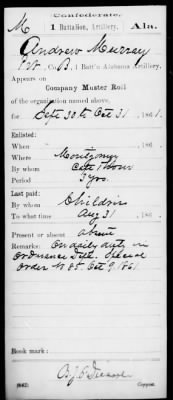 Confederate.
M 1 Battalion, Artillery, Ala.
Andrew Murray
Pvt, Co. B, 1 Batt'n Alabama Artillery.
Appears on
Company Muster Roll
of the organization named above,
for Sept 30 to Oct 31, 1861.
Enlisted:
When , 186 .
Where Montgomery
By whom Capt
Period 3 yrs.
Last paid:
By whom Childris
To what time Aug 31, 186 .
Present or absent absent
Remarks: On daily duty in
Ordnance Dept. Special
Order No 85. Oct 9, 1861.
Book mark:
(642) Copyist.